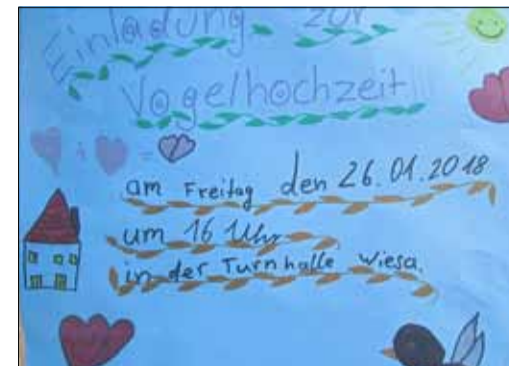 Einladung zur
Vogelhochzeit
am Freitag den 26.01.2018
um 16 Uhr
in der Turnhalle Wiesa.